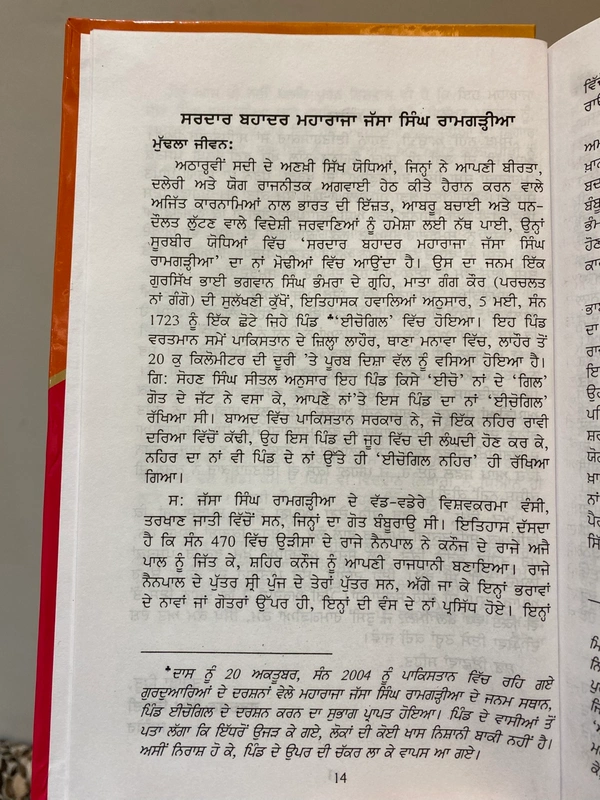 ਸਰਦਾਰ ਬਹਾਦਰ ਮਹਾਰਾਜਾ ਜੱਸਾ ਸਿੰਘ ਰਾਮਗੜ੍ਹੀਆ
ਮੁੱਢਲਾ ਜੀਵਨ:
ਅਠਾਰ੍ਹਵੀਂ ਸਦੀ ਦੇ ਅਣਖ਼ੀ ਸਿੱਖ ਯੋਧਿਆਂ, ਜਿਨ੍ਹਾਂ ਨੇ ਆਪਣੀ ਬੀਰਤਾ,
ਦਲੇਰੀ ਅਤੇ ਯੋਗ ਰਾਜਨੀਤਕ ਅਗਵਾਈ ਹੇਠ ਕੀਤੇ ਹੈਰਾਨ ਕਰਨ ਵਾਲੇ
ਅਜਿੱਤ ਕਾਰਨਾਮਿਆਂ ਨਾਲ ਭਾਰਤ ਦੀ ਇੱਜ਼ਤ, ਆਬਰੂ ਬਚਾਈ ਅਤੇ ਧਨ-
ਦੌਲਤ ਲੁੱਟਣ ਵਾਲੇ ਵਿਦੇਸ਼ੀ ਜਰਵਾਣਿਆਂ ਨੂੰ ਹਮੇਸ਼ਾ ਲਈ ਨੱਥ ਪਾਈ, ਉਨ੍ਹਾਂ
ਸੂਰਬੀਰ ਯੋਧਿਆਂ ਵਿੱਚ ‘ਸਰਦਾਰ ਬਹਾਦਰ ਮਹਾਰਾਜਾ ਜੱਸਾ ਸਿੰਘ
ਰਾਮਗੜ੍ਹੀਆ’ ਦਾ ਨਾਂ ਮੋਢੀਆਂ ਵਿੱਚ ਆਉਂਦਾ ਹੈ। ਉਸ ਦਾ ਜਨਮ ਇੱਕ
ਗੁਰਸਿੱਖ ਭਾਈ ਭਗਵਾਨ ਸਿੰਘ ਭੰਮਰਾ ਦੇ ਗ੍ਰਹਿ, ਮਾਤਾ ਗੰਗ ਕੌਰ (ਪਰਚਲਤ
ਨਾਂ ਗੰਗੋ) ਦੀ ਸੁਲੱਖਣੀ ਕੁੱਖੋਂ, ਇਤਿਹਾਸਕ ਹਵਾਲਿਆਂ ਅਨੁਸਾਰ, 5 ਮਈ, ਸੰਨ
1723 ਨੂੰ ਇੱਕ ਛੋਟੇ ਜਿਹੇ ਪਿੰਡ *‘ਈਚੋਗਿਲ’ ਵਿੱਚ ਹੋਇਆ। ਇਹ ਪਿੰਡ
ਵਰਤਮਾਨ ਸਮੇਂ ਪਾਕਿਸਤਾਨ ਦੇ ਜ਼ਿਲ੍ਹਾ ਲਾਹੌਰ, ਥਾਣਾ ਮਨਾਵਾ ਵਿੱਚ, ਲਾਹੌਰ ਤੋਂ
20 ਕੁ ਕਿਲੋਮੀਟਰ ਦੀ ਦੂਰੀ ’ਤੇ ਪੂਰਬ ਦਿਸ਼ਾ ਵੱਲ ਨੂੰ ਵਸਿਆ ਹੋਇਆ ਹੈ।
ਗਿ: ਸੋਹਣ ਸਿੰਘ ਸੀਤਲ ਅਨੁਸਾਰ ਇਹ ਪਿੰਡ ਕਿਸੇ ‘ਈਚੋ’ ਨਾਂ ਦੇ ‘ਗਿਲ’
ਗੋਤ ਦੇ ਜੱਟ ਨੇ ਵਸਾ ਕੇ, ਆਪਣੇ ਨਾਂ’ਤੇ ਇਸ ਪਿੰਡ ਦਾ ਨਾਂ ‘ਈਚੋਗਿਲ’
ਰੱਖਿਆ ਸੀ। ਬਾਅਦ ਵਿੱਚ ਪਾਕਿਸਤਾਨ ਸਰਕਾਰ ਨੇ, ਜੋ ਇੱਕ ਨਹਿਰ ਰਾਵੀ
ਦਰਿਆ ਵਿੱਚੋਂ ਕੱਢੀ, ਉਹ ਇਸ ਪਿੰਡ ਦੀ ਜੂਹ ਵਿੱਚ ਦੀ ਲੰਘਦੀ ਹੋਣ ਕਰ ਕੇ,
ਨਹਿਰ ਦਾ ਨਾਂ ਵੀ ਪਿੰਡ ਦੇ ਨਾਂ ਉੱਤੇ ਹੀ ‘ਈਚੋਗਿਲ ਨਹਿਰ’ ਹੀ ਰੱਖਿਆ
ਗਿਆ।
ਸ: ਜੱਸਾ ਸਿੰਘ ਰਾਮਗੜ੍ਹੀਆ ਦੇ ਵੱਡ-ਵਡੇਰੇ ਵਿਸ਼ਵਕਰਮਾ ਵੰਸੀ,
ਤਰਖਾਣ ਜਾਤੀ ਵਿੱਚੋਂ ਸਨ, ਜਿਨ੍ਹਾਂ ਦਾ ਗੋਤ ਬੰਬੂਰਾਉ ਸੀ। ਇਤਿਹਾਸ ਦੱਸਦਾ
ਹੈ ਕਿ ਸੰਨ 470 ਵਿੱਚ ਉੜੀਸਾ ਦੇ ਰਾਜੇ ਨੈਨਪਾਲ ਨੇ ਕਨੌਜ ਦੇ ਰਾਜੇ ਅਜੈ
ਪਾਲ ਨੂੰ ਜਿੱਤ ਕੇ, ਸ਼ਹਿਰ ਕਨੌਜ ਨੂੰ ਆਪਣੀ ਰਾਜਧਾਨੀ ਬਣਾਇਆ। ਰਾਜੇ
ਨੈਨਪਾਲ ਦੇ ਪੁੱਤਰ ਸ਼੍ਰੀ ਪੁੰਜ ਦੇ ਤੇਰਾਂ ਪੁੱਤਰ ਸਨ, ਅੱਗੇ ਜਾ ਕੇ ਇਨ੍ਹਾਂ ਭਰਾਵਾਂ
ਦੇ ਨਾਵਾਂ ਜਾਂ ਗੋਤਰਾਂ ਉੱਪਰ ਹੀ, ਇਨ੍ਹਾਂ ਦੀ ਵੰਸ ਦੇ ਨਾਂ ਪ੍ਰਸਿੱਧ ਹੋਏ। ਇਨ੍ਹਾਂ
*ਦਾਸ ਨੂੰ 20 ਅਕਤੂਬਰ, ਸੰਨ 2004 ਨੂੰ ਪਾਕਿਸਤਾਨ ਵਿੱਚ ਰਹਿ ਗਏ
ਗੁਰਦੁਆਰਿਆਂ ਦੇ ਦਰਸ਼ਨਾਂ ਵੇਲੇ ਮਹਾਰਾਜਾ ਜੱਸਾ ਸਿੰਘ ਰਾਮਗੜ੍ਹੀਆ ਦੇ ਜਨਮ ਸਥਾਨ,
ਪਿੰਡ ਈਚੋਗਿਲ ਦੇ ਦਰਸ਼ਨ ਕਰਨ ਦਾ ਸੁਭਾਗ ਪ੍ਰਾਪਤ ਹੋਇਆ। ਪਿੰਡ ਦੇ ਵਾਸੀਆਂ ਤੋਂ
ਪਤਾ ਲੱਗਾ ਕਿ ਇੱਧਰੋਂ ਉਜੜ ਕੇ ਗਏ, ਲੋਕਾਂ ਦੀ ਕੋਈ ਖਾਸ ਨਿਸ਼ਾਨੀ ਬਾਕੀ ਨਹੀਂ ਹੈ।
ਅਸੀਂ ਨਿਰਾਸ਼ ਹੋ ਕੇ, ਪਿੰਡ ਦੇ ਉਪਰ ਦੀ ਚੱਕਰ ਲਾ ਕੇ ਵਾਪਸ ਆ ਗਏ।
14